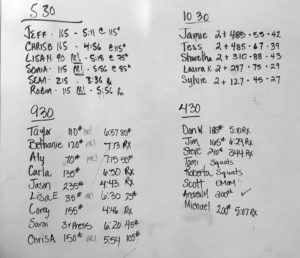 530
JEFF · 165 - 5:11 @ 115#
CHRIS B · 145 - 4:56 @ 115#
LISA H 90 PR! - 5:05 @ 75#
SONIA · 115 PR! - 5:56 @ 85#
SEAN · 215 - 3:36 Rx
ROBIN · 115 PR! - 5:56 Rx
930
Taylor 110# PR! 6:57 80#
Bethanie 120# PR! 7:13 RX
Aly 70# PR! 7:15 50#
Carla 135# 6:50 RX
Jason 235# 4:43 RX
Lisa E 35# PR! 6:30 25#
Corey 155# 4:46 RX
Sara 3xPress 6:20 45#
Chris A 150# PR! 5:54 105#
1030
Jamie 2 + 485 · 55 · 42
Tess 2 + 485 · 67 · 39
Shwetha 2 + 310 · 88 · 43
Laura K 2 + 297 · 75 · 29
Sylvie 2 + 127 · 45 · 27
430
Dan W. 185# 5:10 RX
Jim 165# 6:29 RX
Steve 240# 3:44 RX
Tami Squats
Roberta Squats
Scott EMOM
Andrew M 200# ✓
Michael 200# 5:07 RX